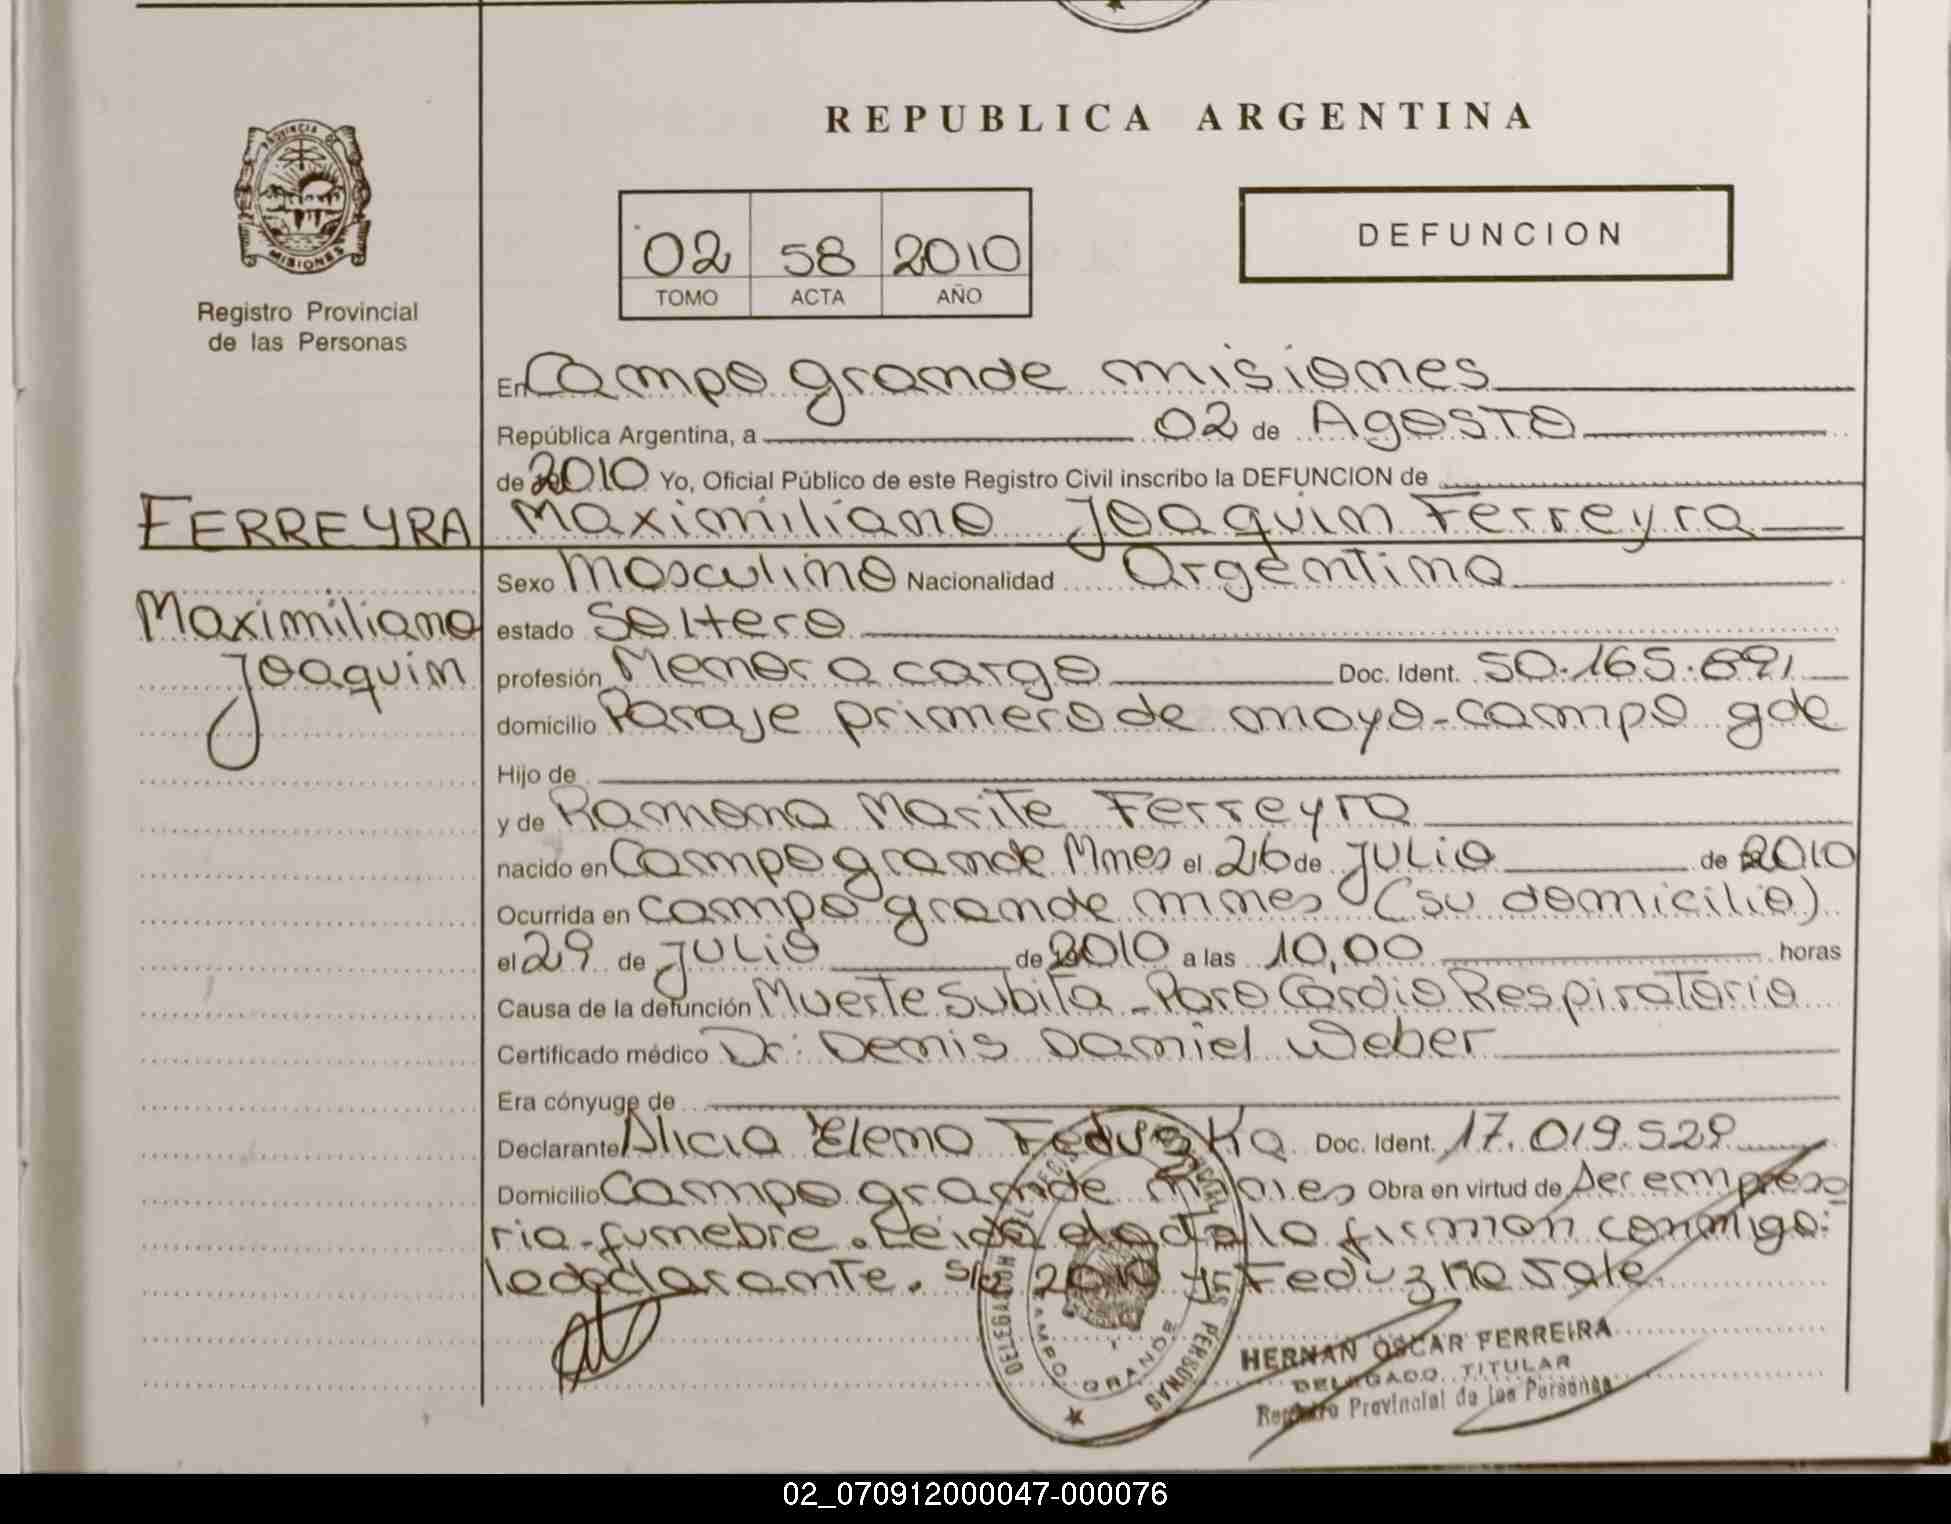 REPUBLICA ARGENTINA
PROVINCIA DE
MISIONES
Registro Provincial
de las Personas
02 58 2010
TOMO ACTA AÑO
DEFUNCION
En Campo grande misiones
República Argentina, a 02 de Agosto
de 2010 Yo, Oficial Público de este Registro Civil inscribo la DEFUNCION de
FERREYRA
Maximiliano
Joaquin
Maximiliano Joaquin Ferreyra
Sexo Masculino Nacionalidad Argentina
estado Soltero
profesión Menor a cargo Doc. Ident. 50.165.691
domicilio Paraje primero de mayo-campo gde
Hijo de
y de Ramona Marite Ferreyra
nacido en Campo grande Mnes el 26 de Julio de 2010
Ocurrida en campo grande mnes (su domicilio)
el 29 de Julio de 2010 a las 10,00 horas
Causa de la defunción Muerte Subita - Paro Cardio Respiratorio
Certificado médico Dr. Denis Daniel Weber
Era cónyuge de
Declarante Alicia Elena Feduzka Doc. Ident. 17.019.529
Domicilio Campo grande mnes Obra en virtud de ser empreso
ria-funebre. Leida el acta la firman conmigo:
la declarante. S/r 2010 y Feduzka vale.
DELEGACION
CAMPO GRANDE
PERSONAS
HERNAN OSCAR FERREIRA
DELEGADO TITULAR
Registro Provincial de las Personas
02_070912000047-000076